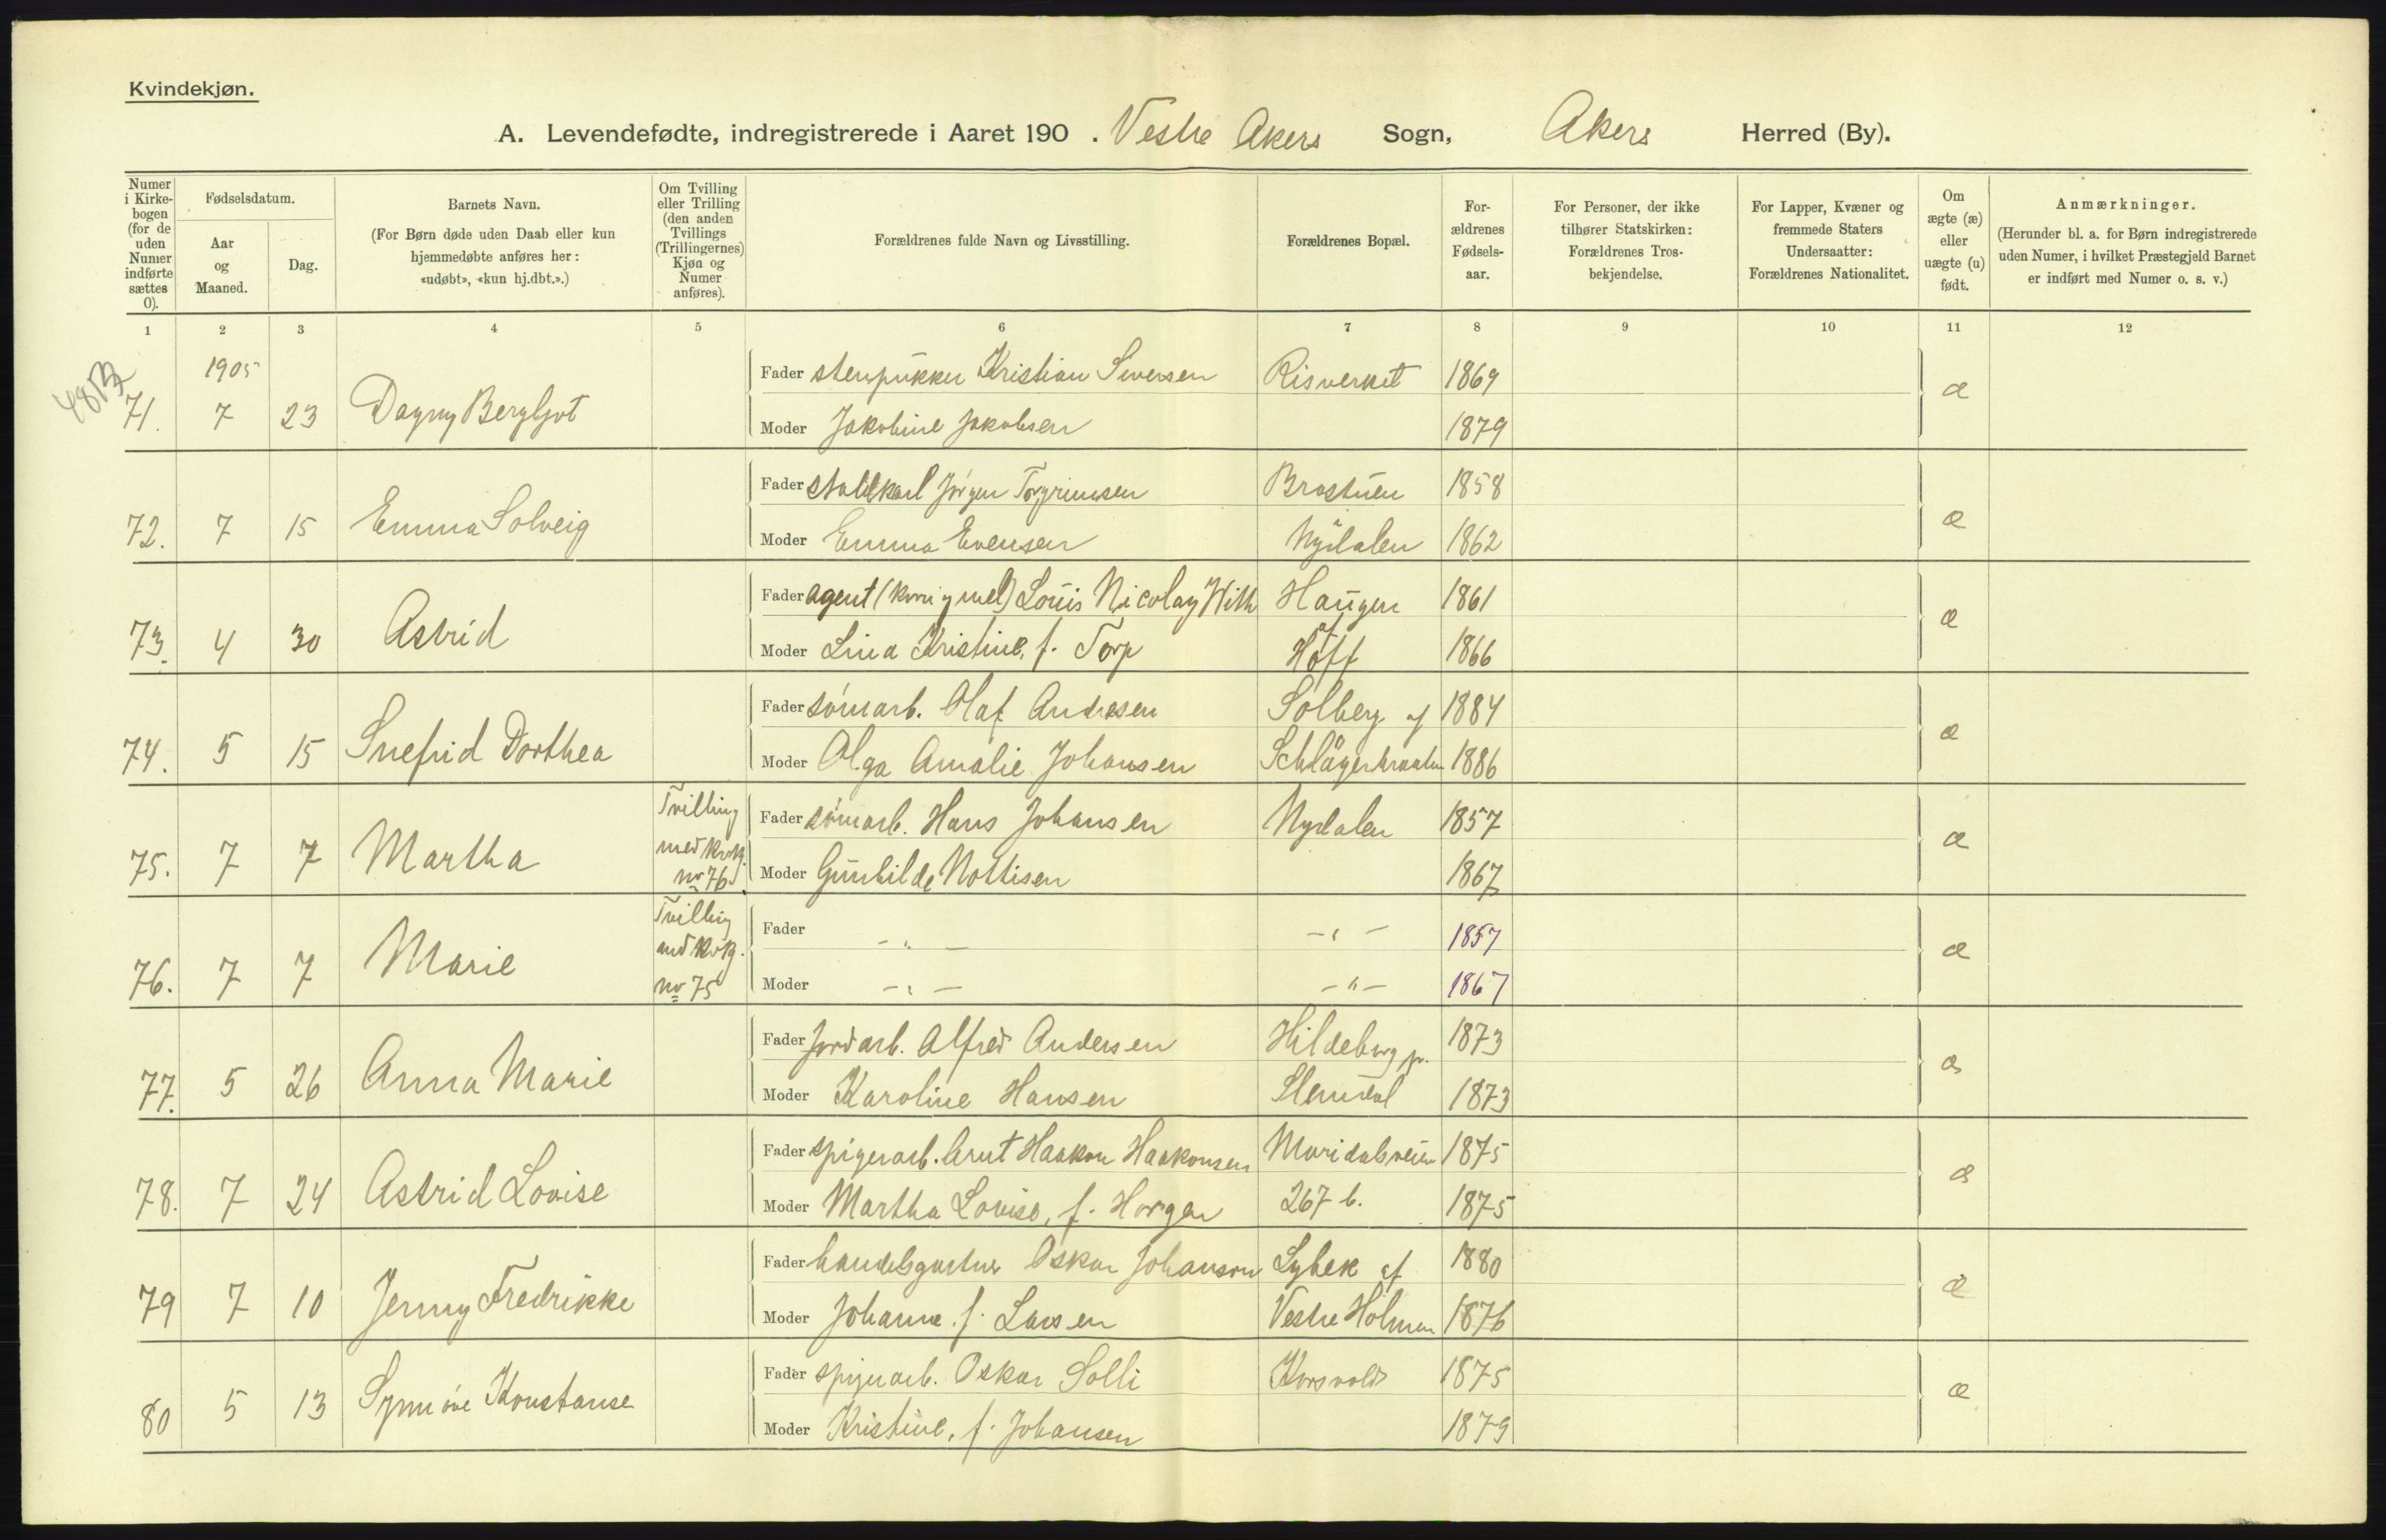 Kvindekjøn.
A. Levendefødte, indregistrerede i Aaret 190 . Vestre Akers Sogn, Akers Herred (By).
Numer i Kirkebogen (for de uden Numer indførte sættes 0).
Fødselsdatum.
Aar og Maaned.
Dag.
Barnets Navn.
(For Børn døde uden Daab eller kun hjemmedøbte anføres her: «udøbt», «kun hj.dbt.».)
Om Tvilling eller Trilling (den anden Tvillings (Trillingernes) Kjøn og Numer anføres).
Forældrenes fulde Navn og Livsstilling.
Forældrenes Bopæl.
Forældrenes Fødselsaar.
For Personer, der ikke tilhører Statskirken: Forældrenes Trosbekjendelse.
For Lapper, Kvæner og fremmede Staters Undersaatter: Forældrenes Nationalitet.
Om ægte (æ) eller uægte (u) født.
Anmærkninger.
(Herunder bl. a. for Børn indregistrerede uden Numer, i hvilket Præstegjeld Barnet er indført med Numer o. s. v.)
1 2 3 4 5 6 7 8 9 10 11 12
1905 Fader stenpukker Kristian Siversen Risverket 1869
71. 7 23 Dagny Bergljot Moder Jakobine Jakobsen 1879 æ
Fader staldkarl Jörgen Torgrimsen Brostuen 1858
72. 7 15 Emma Solveig Moder Emma Evensen Nydalen 1862 æ
Fader agent (korn og mel) Louis Nicolay With Haugen 1861
73. 4 30 Astrid Moder Lina Kristine, f. Torp Hoff 1866 æ
Fader sömarb. Olaf Andresen Solberg af 1884
74. 5 15 Snefrid Dorthea Moder Olga Amalie Johansen 1886 æ
Tvilling Fader sömarb. Hans Johansen Nydalen 1857
75. 7 7 Martha med kvkj. nr 76 Moder Gunhilde Nottisen 1867 æ
Tvilling Fader - " - - " - 1857
76. 7 7 Marie med kvkj. nr 75 Moder - " - - " - 1867 æ
Fader jordarb. Alfred Andersen Hildeborg pr. 1873
77. 5 26 Anna Marie Moder Karoline Hansen Slemdal 1873 æ
Fader spigerarb. Arnt Haakon Haakonsen Maridalsveien 1875
78. 7 24 Astrid Lovise Moder Martha Lovise, f. Horgen 267 b. 1875 æ
Fader handelsgartner Oskar Johanson Lybek af 1880
79 7 10 Jenny Fredrikke Moder Johanne f. Larsen Vestre Holmen 1876 æ
Fader spigerarb. Oskar Solli Korsvold 1875
80 5 13 Synnöve Konstanse Moder Kristine, f. Johansen 1879 æ